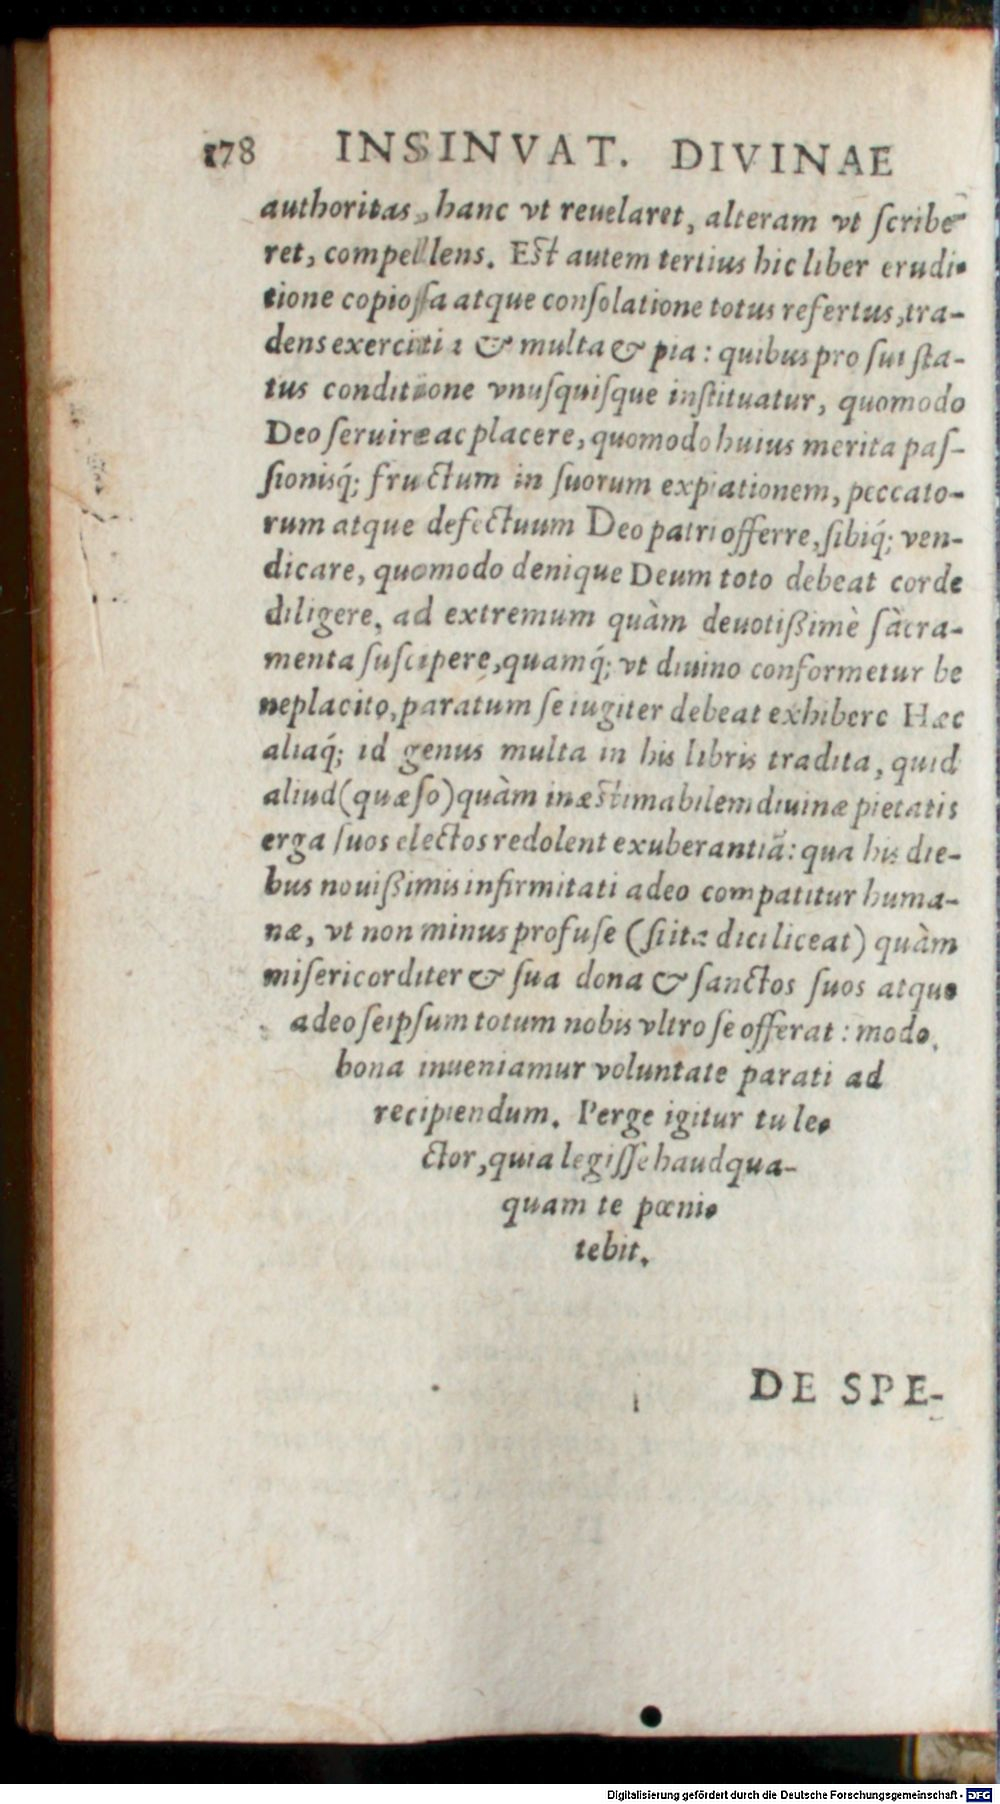 178 INSINVAT. DIVINAE
authoritas, hanc vt reuelaret, alteram vt ſcribe-
ret, compellens. Eſt autem tertius hic liber erudi-
tione copioſſa atque conſolatione totus refertus, tra-
dens exercitia & multa & pia: quibus pro ſui ſta-
tus conditione vnuſquiſque inſtituatur, quomodo
Deo ſeruire ac placere, quomodo huius merita paſ-
ſionisq́; fructum in ſuorum expiationem, peccato-
rum atque defectuum Deo patri offerre, ſibiq́; ven-
dicare, quomodo denique Deum toto debeat corde
diligere, ad extremum quàm deuotißimè ſàcra-
menta ſuſcipere, quamq́; vt diuino conformetur be
neplacito, paratum ſe iugiter debeat exhibere Hæc
aliaq́; id genus multa in his libris tradita, quid
aliud (quæſo) quàm inæſtimabilem diuinæ pietatis
erga ſuos electos redolent exuberantiã: qua his die-
bus nouißimis infirmitati adeo compatitur huma-
næ, vt non minus profuſe (ſi ita dici liceat) quàm
miſericorditer & ſua dona & ſanctos ſuos atque
adeo ſeipſum totum nobis vltro ſe offerat: modo
bona inueniamur voluntate parati ad
recipiendum. Perge igitur tu le-
ctor, quia legiſſe haudqua-
quam te pœni-
tebit.
DE SPE-
Digitalisierung gefördert durch die Deutsche Forschungsgemeinschaft - DFG